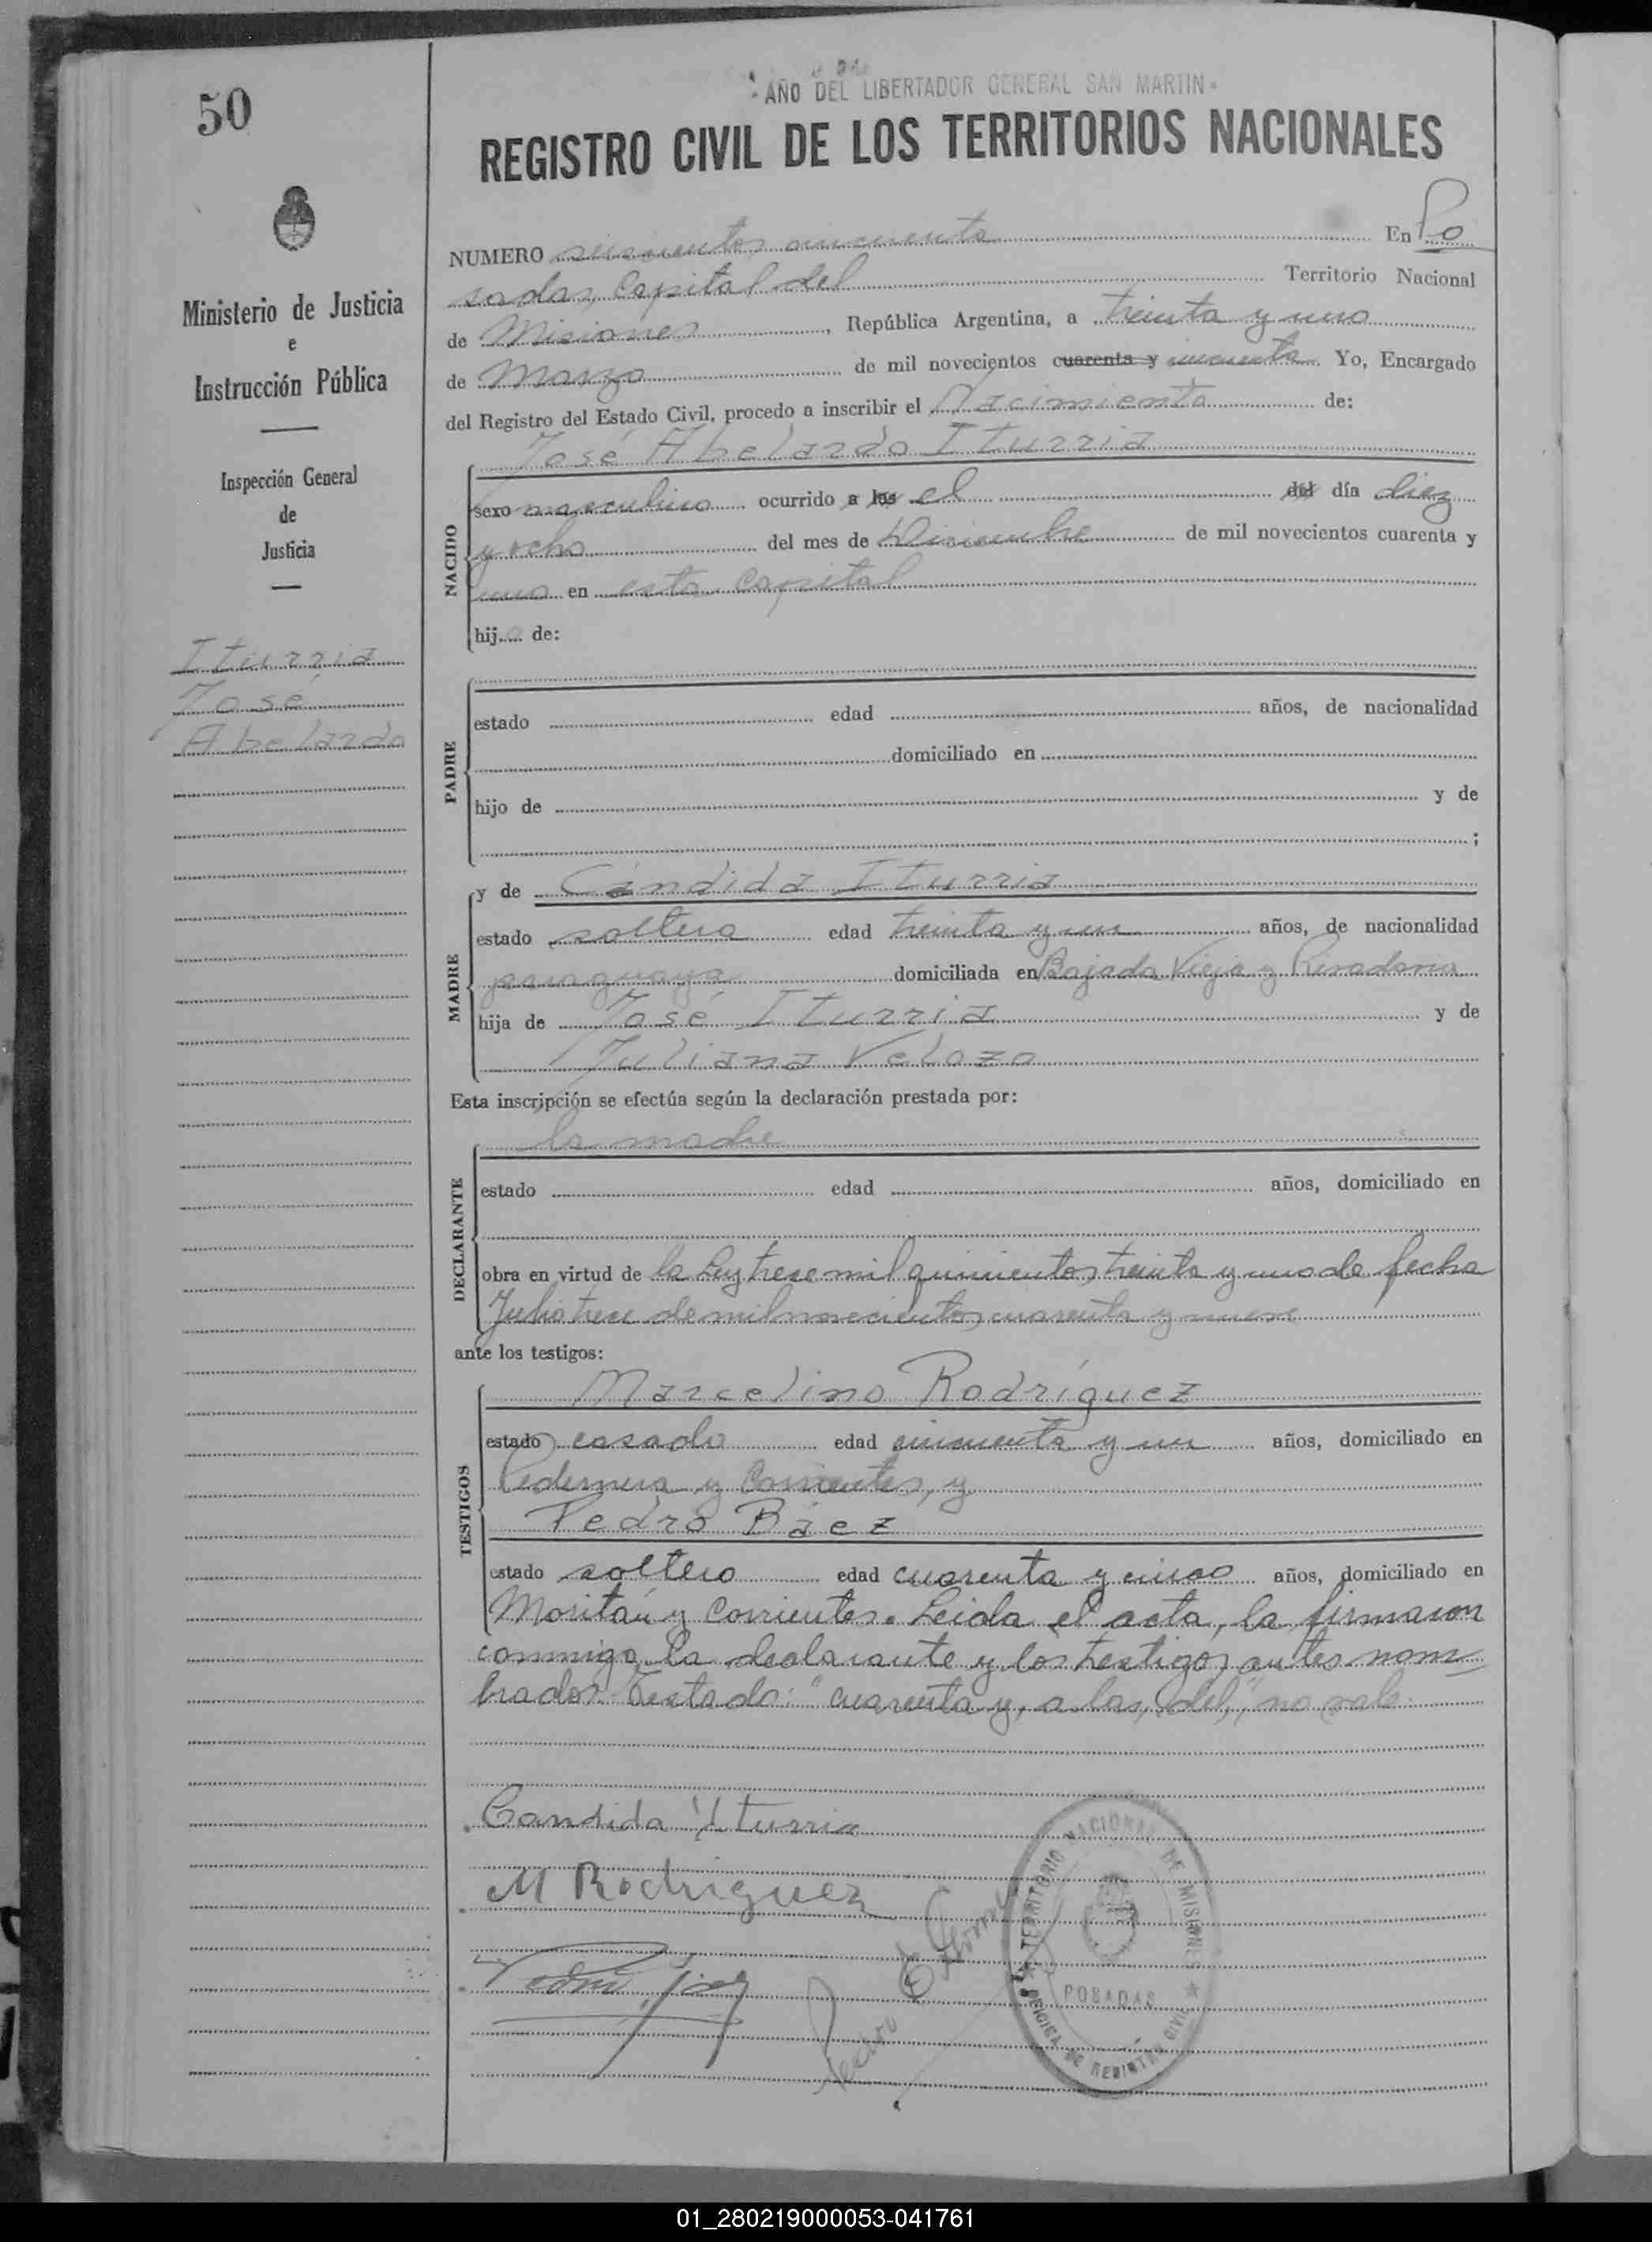 50
"AÑO DEL LIBERTADOR GENERAL SAN MARTIN"
REGISTRO CIVIL DE LOS TERRITORIOS NACIONALES
Ministerio de Justicia
e
Instrucción Pública
Inspección General
de
Justicia
Iturria
José
Abelardo
NUMERO seiscientos cincuenta En Po
sadas, Capital del Territorio Nacional
de Misiones, República Argentina, a treinta y uno
de Marzo de mil novecientos cuarenta y cincuenta. Yo, Encargado
del Registro del Estado Civil, procedo a inscribir el Nacimiento de:
José Abelardo Iturria
NACIDO
sexo masculino ocurrido a las el del día diez
y ocho del mes de Diciembre de mil novecientos cuarenta y
uno en esta Capital
hijo de:
PADRE
estado edad años, de nacionalidad
domiciliado en
hijo de y de
;
MADRE
y de Cándida Iturria
estado soltera edad treinta y un años, de nacionalidad
paraguaya domiciliada en Bajada Vieja y Rivadavia
hija de José Iturria y de
Juliana Velozo
Esta inscripción se efectúa según la declaración prestada por:
DECLARANTE
la madre
estado edad años, domiciliado en
obra en virtud de la Ley trece mil quinientos treinta y uno de fecha
Julio trece de mil novecientos cuarenta y nueve
ante los testigos:
TESTIGOS
Marcelino Rodríguez
estado casado edad cincuenta y un años, domiciliado en
Pedernera y Corrientes, y
Pedro Báez
estado soltero edad cuarenta y cinco años, domiciliado en
Moritán y Corrientes. Leida el acta, la firmaron
conmigo la declarante y los testigos antes nom
brados. Testado: "cuarenta y, a las, del," no vale.
Candida Yturria
M Rodriguez
Pedro
Pedro E
TERRITORIO NACIONAL DE MISIONES
POSADAS
OFICINA DE REGISTRO CIVIL
01_280219000053-041761